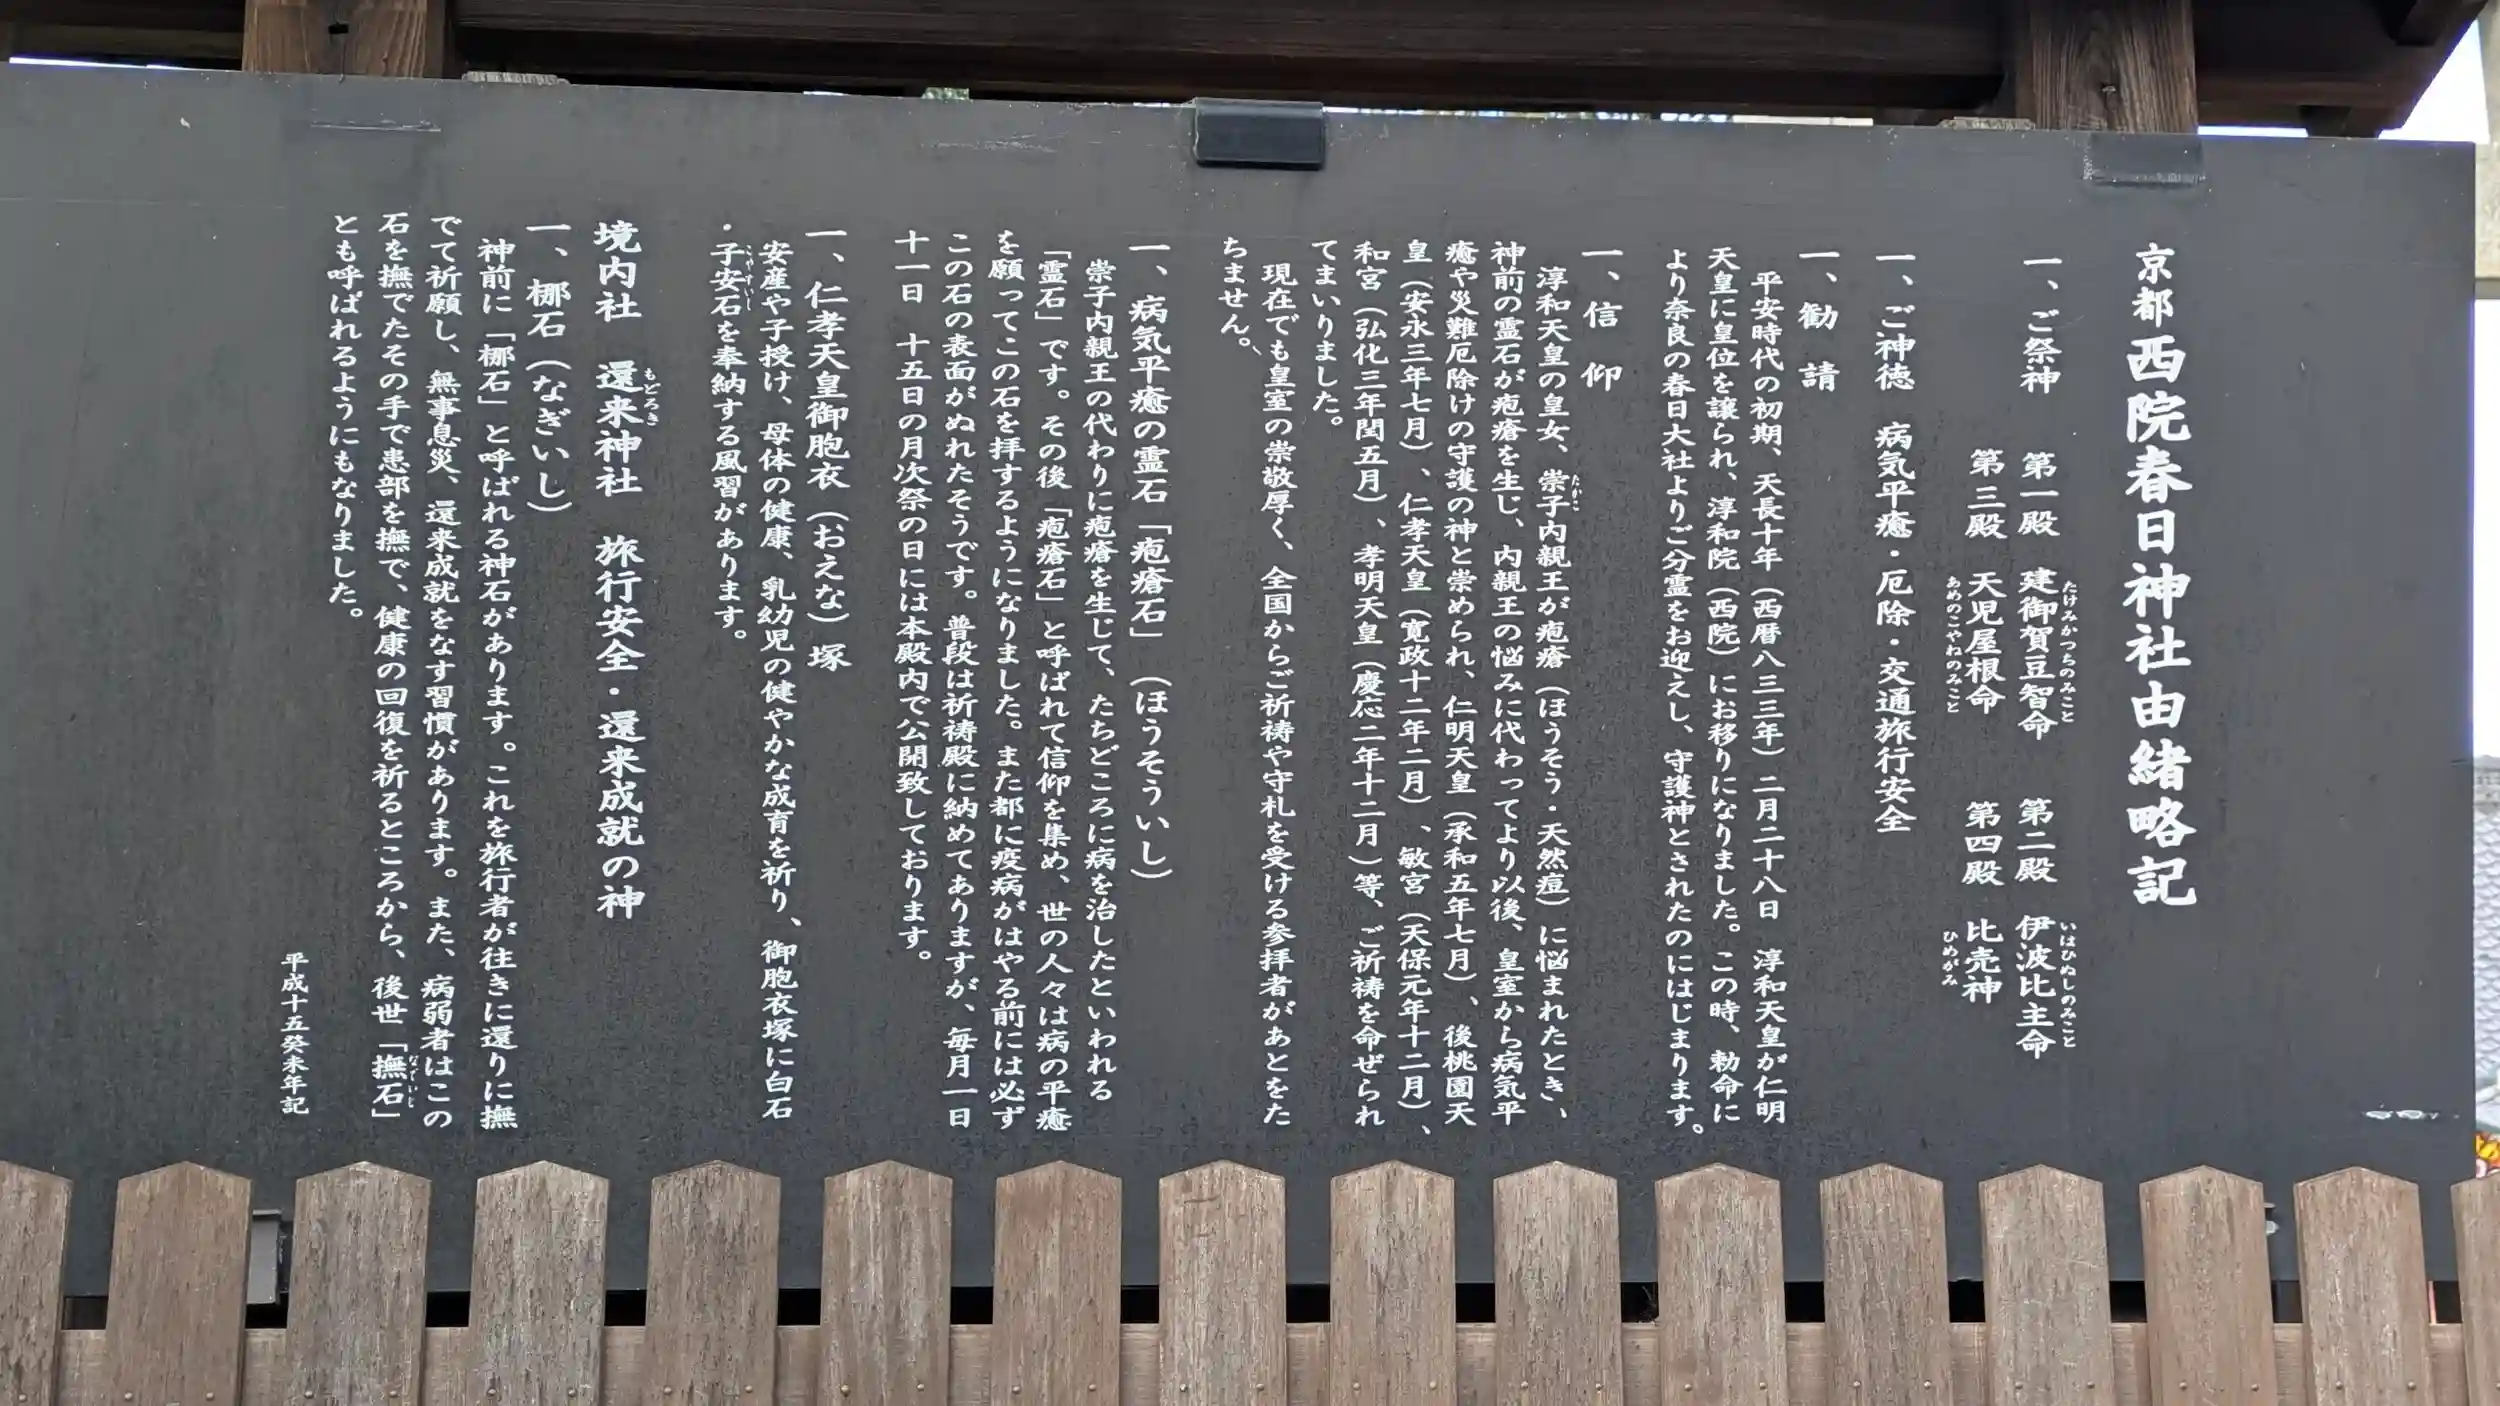 京都西院春日神社由緒略記
一、ご祭神 第一殿 建御賀豆智命 第二殿 伊波比主命
たけみかつちのみこと いはひぬしのみこと
第三殿 天児屋根命 第四殿 比売神
あめのこやねのみこと ひめがみ
一、ご神徳 病気平癒・厄除・交通旅行安全
一、勧請
平安時代の初期、天長十年（西暦八三三年）二月二十八日 淳和天皇が仁明
天皇に皇位を譲られ、淳和院（西院）にお移りになりました。この時、勅命に
より奈良の春日大社よりご分霊をお迎えし、守護神とされたのにはじまります。
一、信仰
淳和天皇の皇女、崇子内親王が疱瘡（ほうそう・天然痘）に悩まれたとき、
たかこ
神前の霊石が疱瘡を生じ、内親王の悩みに代わってより以後、皇室から病気平
癒や災難厄除けの守護の神と崇められ、仁明天皇（承和五年七月）、後桃園天
皇（安永三年七月）、仁孝天皇（寛政十二年二月）、敏宮（天保元年十二月）、
和宮（弘化三年閏五月）、孝明天皇（慶応二年十二月）等、ご祈祷を命ぜられ
てまいりました。
現在でも皇室の崇敬厚く、全国からご祈祷や守札を受ける参拝者があとをた
ちません。
一、病気平癒の霊石「疱瘡石」（ほうそういし）
崇子内親王の代わりに疱瘡を生じて、たちどころに病を治したといわれる
「霊石」です。その後「疱瘡石」と呼ばれて信仰を集め、世の人々は病の平癒
を願ってこの石を拝するようになりました。また都に疫病がはやる前には必ず
この石の表面がぬれたそうです。普段は祈祷殿に納めてありますが、毎月一日
十一日 十五日の月次祭の日には本殿内で公開致しております。
一、仁孝天皇御胞衣（おえな）塚
安産や子授け、母体の健康、乳幼児の健やかな成育を祈り、御胞衣塚に白石
・子安石を奉納する風習があります。
こやすいし
境内社 還来神社 旅行安全・還来成就の神
もどろき
一、梛石（なぎいし）
神前に「梛石」と呼ばれる神石があります。これを旅行者が往きに還りに撫
でて祈願し、無事息災、還来成就をなす習慣があります。また、病弱者はこの
石を撫でたその手で患部を撫で、健康の回復を祈るところから、後世「撫石」
なでいし
とも呼ばれるようにもなりました。
平成十五癸未年記